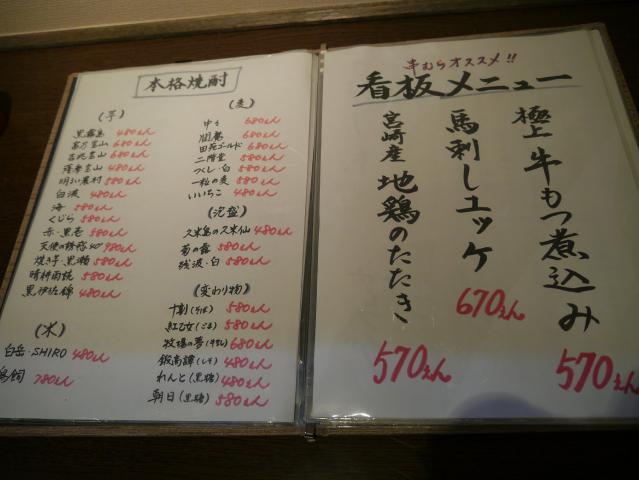 本格焼酎
(芋)
黒霧島 480えん
富乃宝山 680えん
吉兆宝山 680えん
薩摩宝山 480えん
明るい農村 580えん
白波 480えん
海 580えん
くじら 580えん
赤・黒壱 580えん
天使の誘惑 980えん
焼き芋・黒瀬 580えん
晴耕雨読 580えん
黒伊佐錦 480えん
(米)
白岳・SHIRO 480えん
鳥飼 780えん
(麦)
中々 680えん
閻魔 680えん
田苑ゴールド 680えん
二階堂 580えん
つくし・白 580えん
一粒の麦 580えん
いいちこ 480えん
(泡盛)
久米島の久米仙 480えん
菊の露 580えん
残波・白 580えん
(変わり物)
十割(そば) 580えん
紅乙女(ごま) 580えん
牧場の夢(牛乳) 680えん
鍛高譚(しそ) 480えん
れんと(黒糖) 480えん
朝日(黒糖) 580えん
串むらオススメ!!
看板メニュー
極上 牛もつ煮込み 570えん
馬刺しユッケ 670えん
宮崎産 地鶏のたたき 570えん